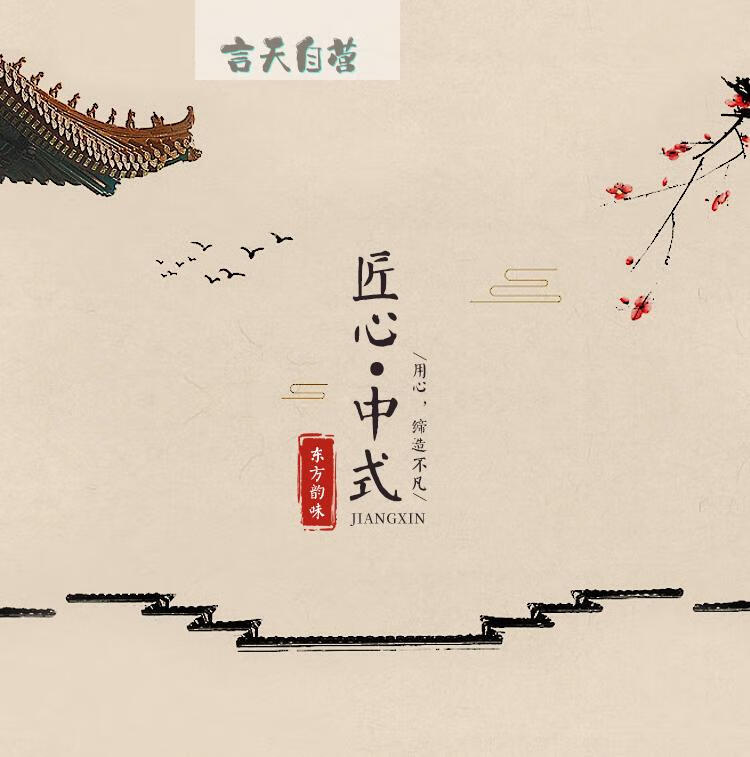 言天自营
匠心·中式
用心，缔造不凡
东方韵味
JIANGXIN